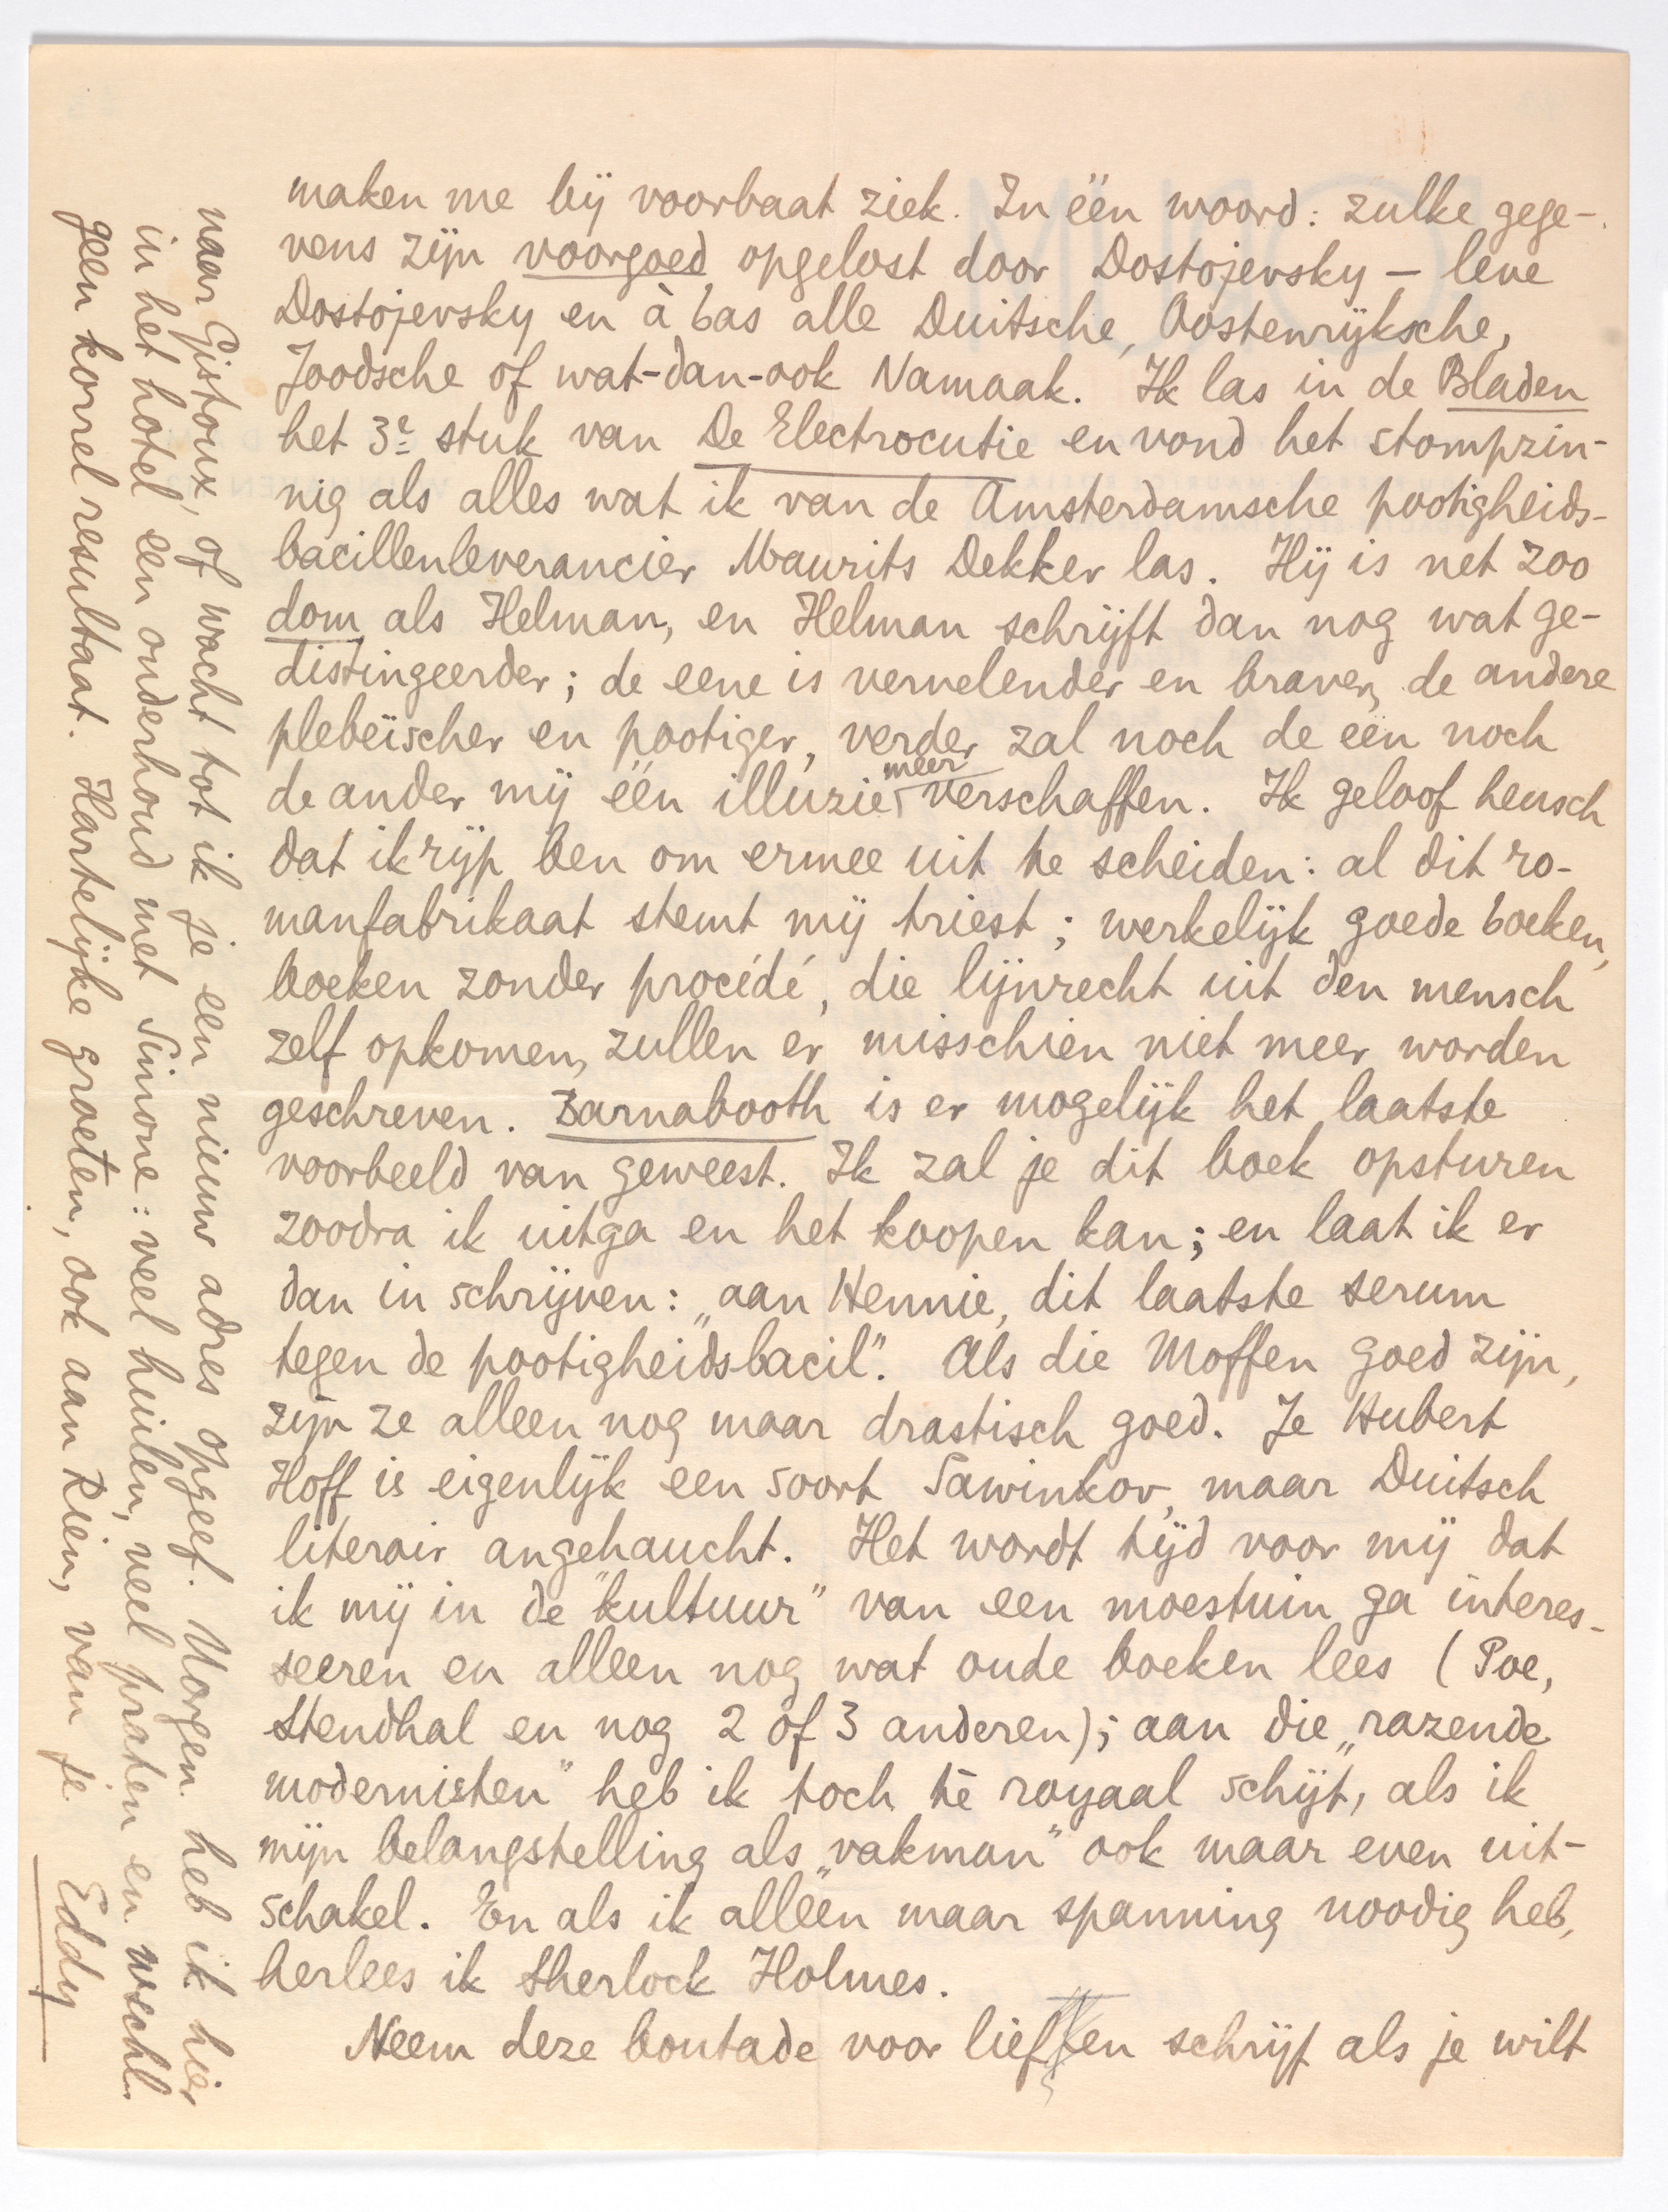 maken me bij voorbaat ziek. In één woord: zulke gege-
vens zijn voorgoed opgelost door Dostojevsky – leve
Dostojevsky en à bas alle Duitsche, Oostenrijksche,
Joodsche of wat-dan-ook Namaak. Ik las in de Bladen
het 3e stuk van De Electrocutie en vond het stompzin-
nig als alles wat ik van de Amsterdamsche pootigheids-
bacillenleverancier Maurits Dekker las. Hij is net zoo
dom als Helman, en Helman schrijft dan nog wat ge-
distingeerder; de eene is vervelender en braver, de andere
plebeïscher en pootiger, verder zal noch de een noch
de ander mij één illuzie meer verschaffen. Ik geloof heusch
dat ik rijp ben om ermee uit te scheiden: al dit ro-
manfabrikaat stemt mij triest; werkelijk goede boeken,
boeken zonder procédé, die lijnrecht uit den mensch
zelf opkomen, zullen er misschien niet meer worden
geschreven. Barnabooth is er mogelijk het laatste
voorbeeld van geweest. Ik zal je dit boek opsturen
zoodra ik uitga en het koopen kan; en laat ik er
dan in schrijven: „aan Hennie, dit laatste serum
tegen de pootigheidsbacil”. Als die Moffen goed zijn,
zijn ze alleen nog maar drastisch goed. Je Hubert
Hoff is eigenlijk een soort Sawinkov, maar Duitsch
literair angehaucht. Het wordt tijd voor mij dat
ik mij in de "kultuur" van een moestuin ga interes-
seeren en alleen nog wat oude boeken lees (Poe,
Stendhal en nog 2 of 3 anderen); aan die „razende
modernisten” heb ik toch té royaal schijt, als ik
mijn belangstelling als „vakman” ook maar even uit-
schakel. En als ik alléén maar spanning noodig heb,
herlees ik Sherlock Holmes.
Neem deze boutade voor lief en schrijf als je wilt
naar Gistoux, of wacht tot ik je een nieuw adres opgeef. Morgen heb ik hier
in het hotel een onderhoud met Simone: veel huilen, veel praten en wschl.
geen korrel resultaat. Hartelijke groeten, ook aan Rien, van je
Eddy